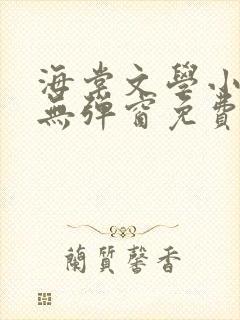 海棠文學小
無彈窗免費
蘭質馨香